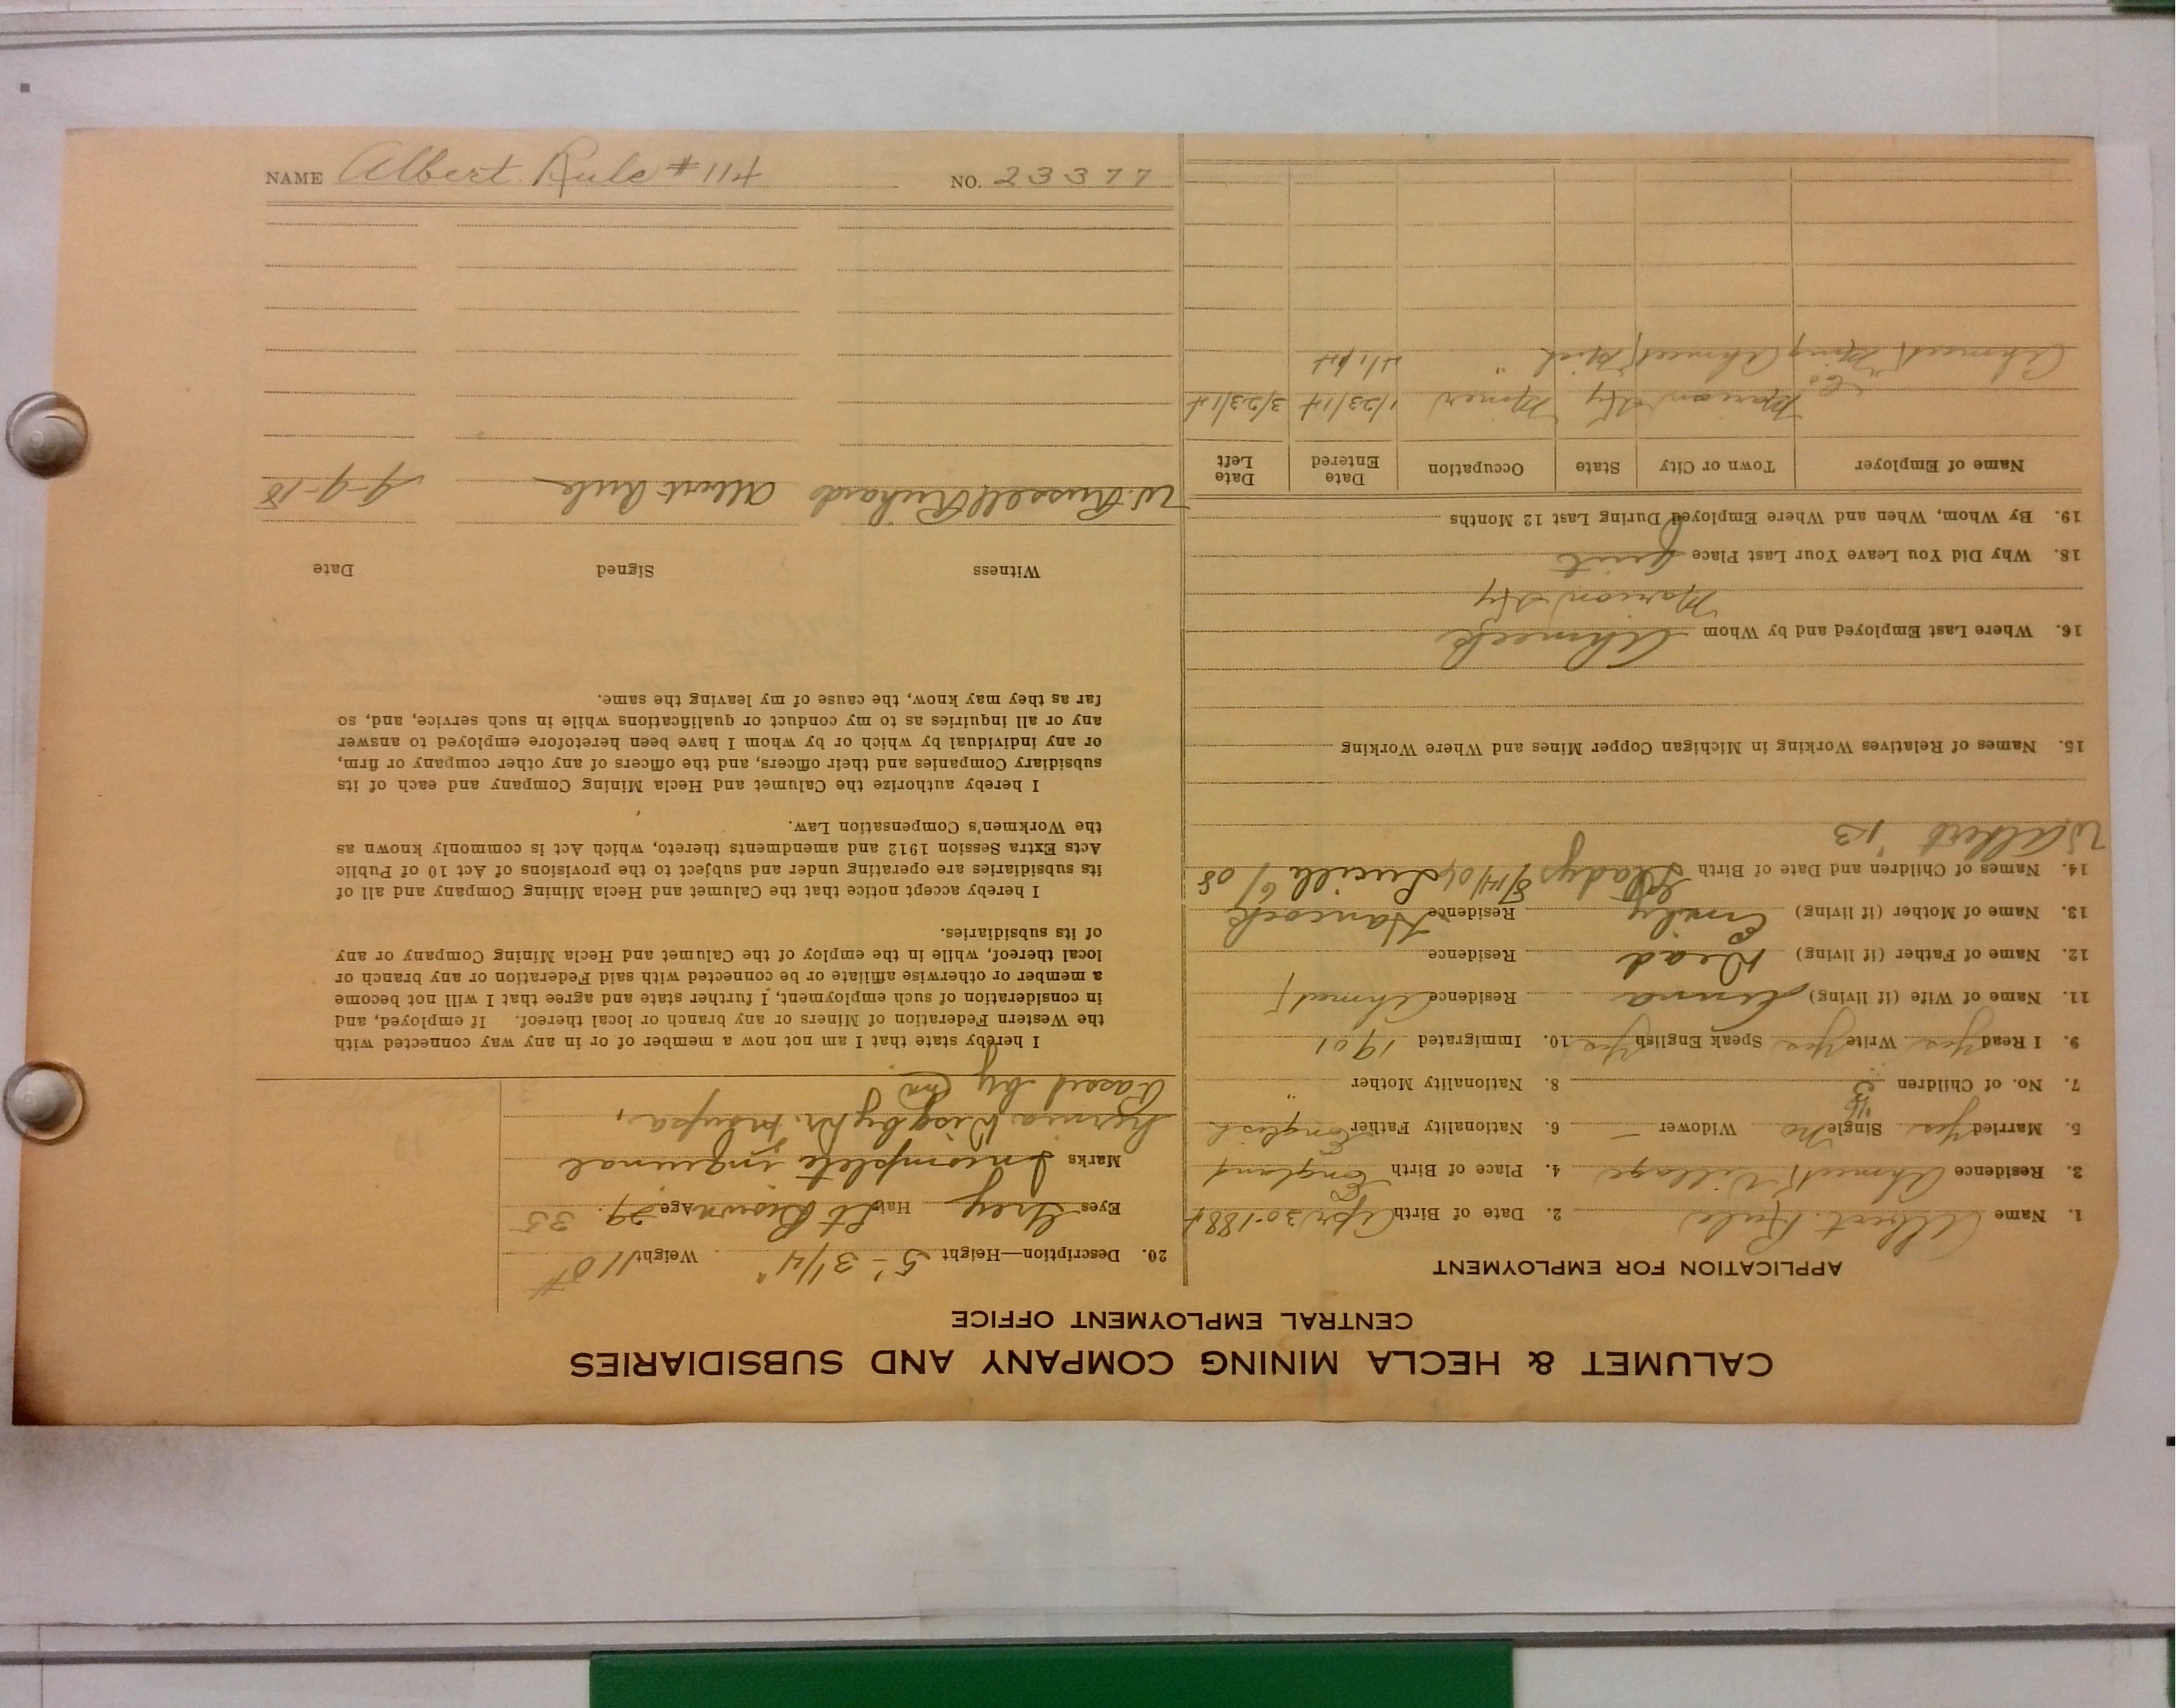 NAME Albert Rule #114 NO. 23377
CALUMET & HECLA MINING COMPANY AND SUBSIDIARIES
CENTRAL EMPLOYMENT OFFICE
APPLICATION FOR EMPLOYMENT
1. Name Albert Rule 2. Date of Birth Apr 30-1884
3. Residence Ahmeek Village 4. Place of Birth England
5. Married Yes Single No Widower — 6. Nationality Father English
7. No. of Children 3 8. Nationality Mother "
9. I Read Yes Write Yes Speak English Yes 10. Immigrated 1901
11. Name of Wife (if living) Anna Residence Ahmeek
12. Name of Father (if living) Dead Residence
13. Name of Mother (if living) Emily Residence Hancock
14. Names of Children and Date of Birth Gladys 8/14/06 Lucille 6/08
W. Albert '13
15. Names of Relatives Working in Michigan Copper Mines and Where Working
16. Where Last Employed and by Whom Ahmeek
Marion Ky
18. Why Did You Leave Your Last Place Quit
19. By Whom, When and Where Employed During Last 12 Months
Name of Employer Town or City State Occupation Date Entered Date Left
Marion Ky Miner 1/23/14 3/23/14
Ahmeek Mining Co. Ahmeek Mich "
20. Description—Height 5'-3 1/4" Weight 118#
Eyes Grey Hair Lt Brown Age 29 35
Marks Incomplete inguinal
hernia Disg by Dr.
Passed by
I hereby state that I am not now a member of or in any way connected with
the Western Federation of Miners or any branch or local thereof. If employed, and
in consideration of such employment, I further state and agree that I will not become
a member or otherwise affiliate or be connected with said Federation or any branch or
local thereof, while in the employ of the Calumet and Hecla Mining Company or any
of its subsidiaries.
I hereby accept notice that the Calumet and Hecla Mining Company and all of
its subsidiaries are operating under and subject to the provisions of Act 10 of Public
Acts Extra Session 1912 and amendments thereto, which Act is commonly known as
the Workmen's Compensation Law.
I hereby authorize the Calumet and Hecla Mining Company and each of its
subsidiary Companies and their officers, and the officers of any other company or firm,
or any individual by which or by whom I have been heretofore employed to answer
any or all inquiries as to my conduct or qualifications while in such service, and, so
far as they may know, the cause of my leaving the same.
Witness Signed Date
W. Russell Richards Albert Rule 9-9-18